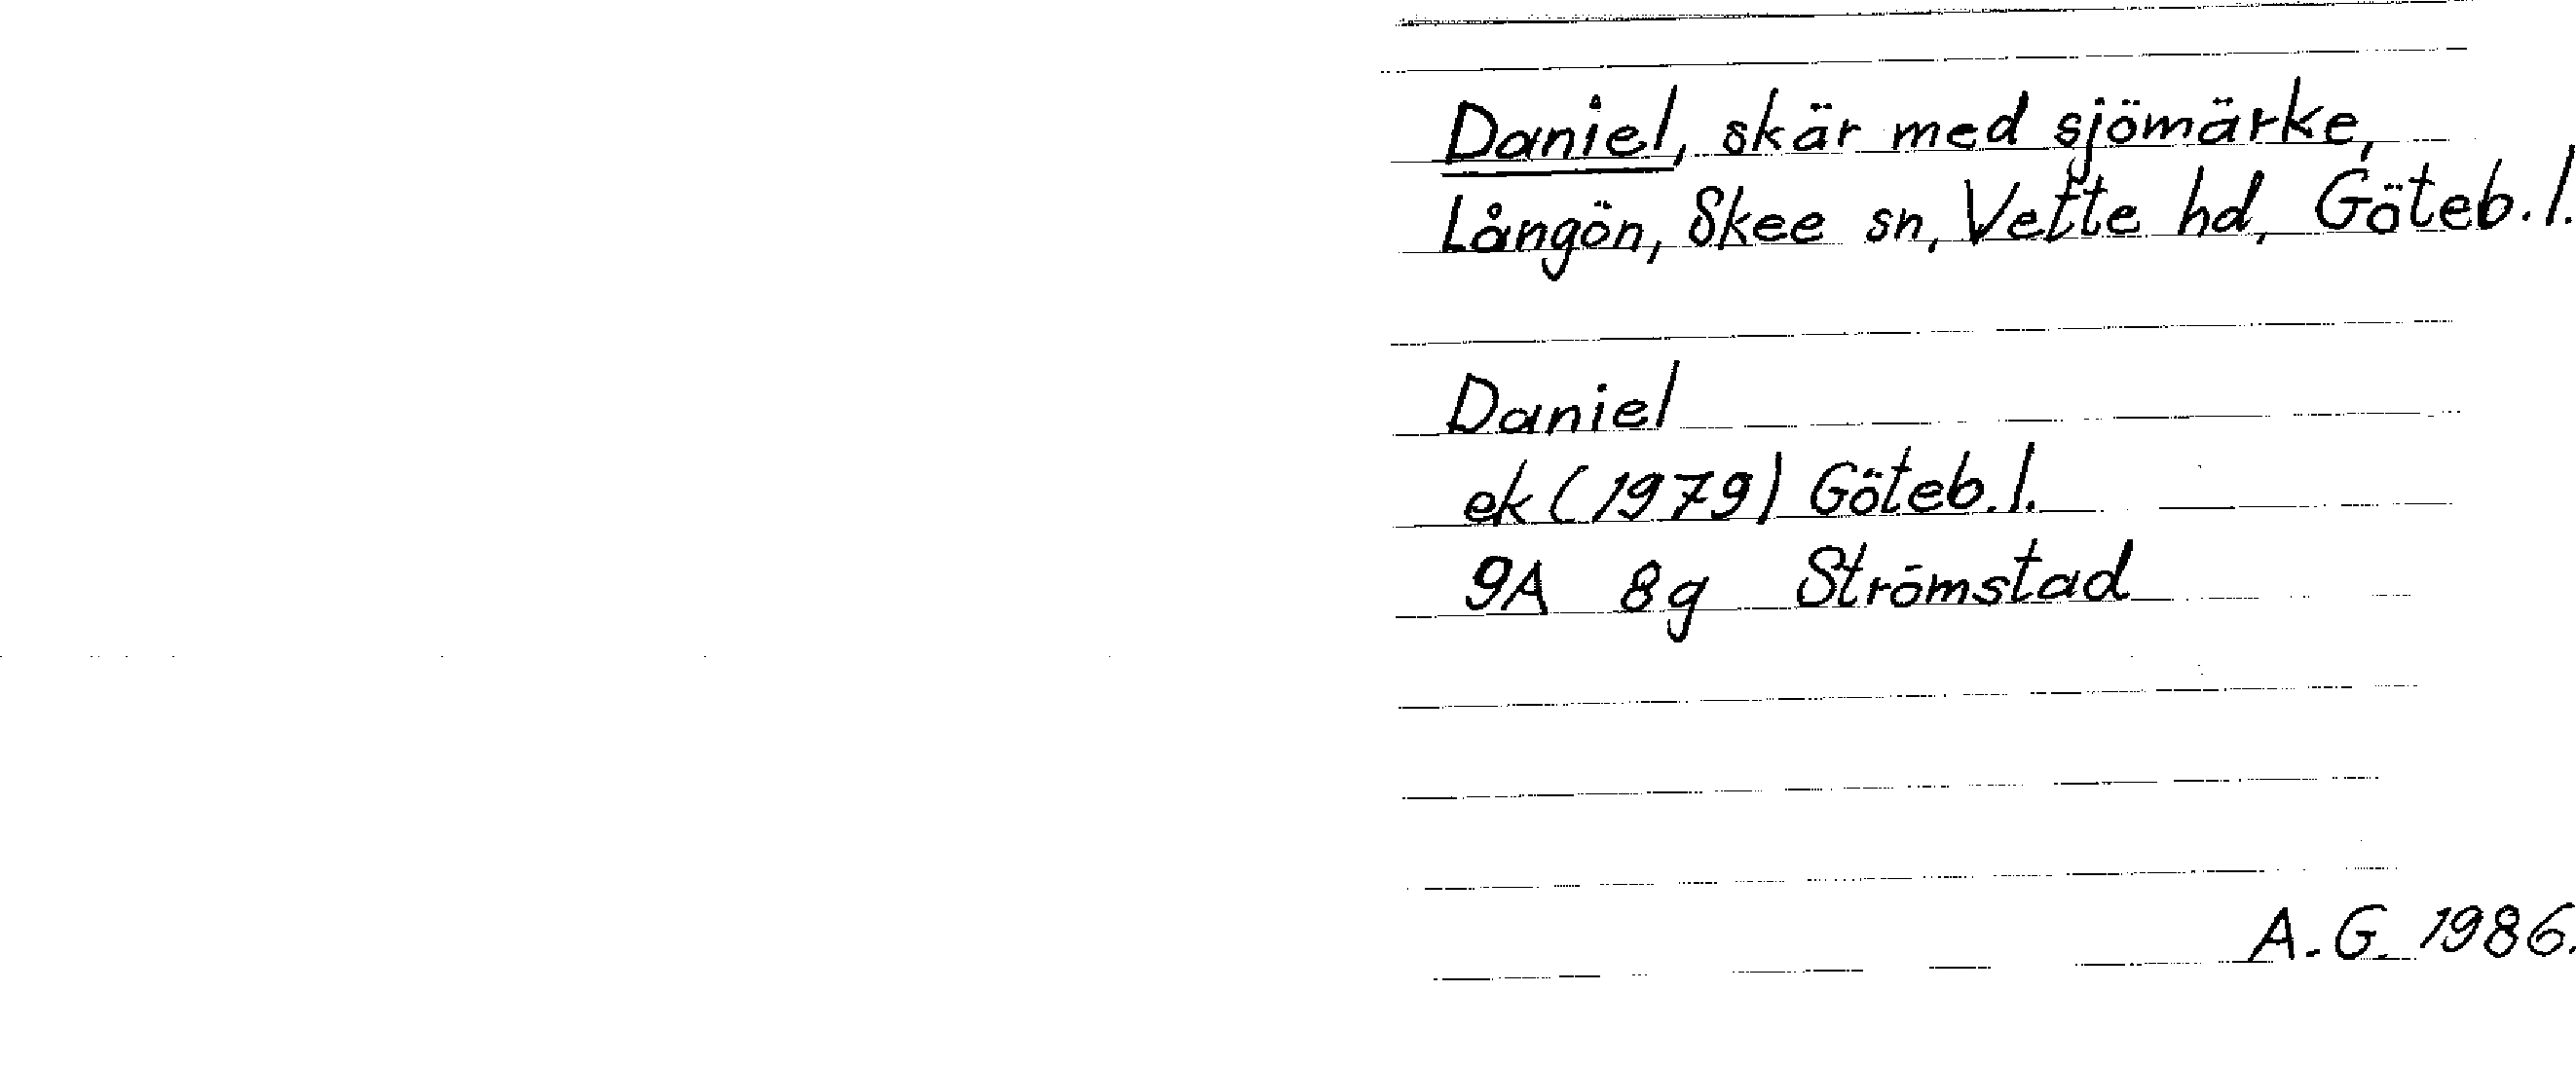 Daniel, skär med sjömärke,
Långön, Skee sn, Vette hd, Göteb. l.
Daniel
ek (1979) Göteb. l.
9A 8g Strömstad
A. G. 1986.